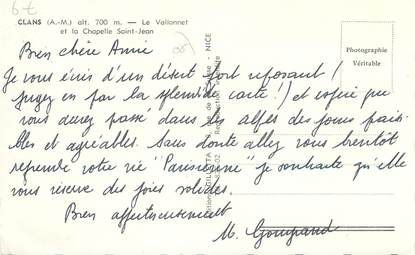 6€
CLANS (A.-M.) alt. 700 m. — Le Vallonnet
et la Chapelle Saint-Jean
Bien chère Annie
Je vous écris d'un désert fort reposant !
jugez en par la splendide carte !) et espère que
vous aurez passé dans les alpes des jours paisi-
bles et agréables. Sans doute allez vous bientôt
reprendre votre vie "Parisienne" je souhaite qu'elle
vous réserve des joies solides.
Bien affectueusement
M.
Photographie
Véritable
NICE